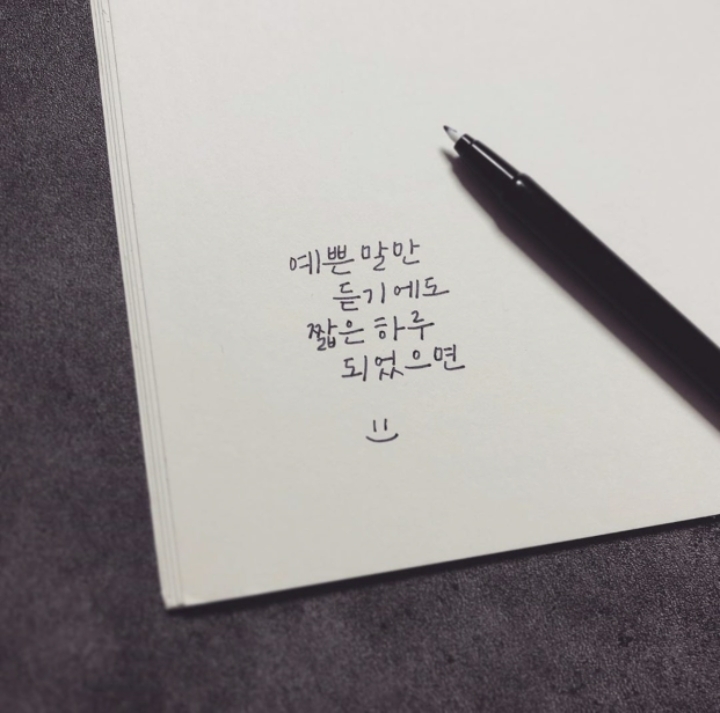 예쁜 말만
듣기에도
짧은 하루
되었으면